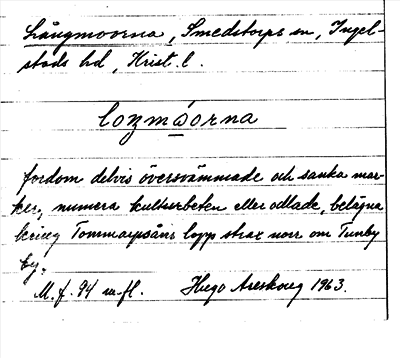 Långmoorna, Smedstorps sn, Ingel-
stads hd, Krist. l.
loŋmóorna
fordom delvis översvämmade och sanka mar-
ker, numera kulturbeten eller odlade, belägna
kring Tommarpsåns lopp strax norr om Tunby
by.
M. f. 94 m. fl. Hugo Areskoug 1963.